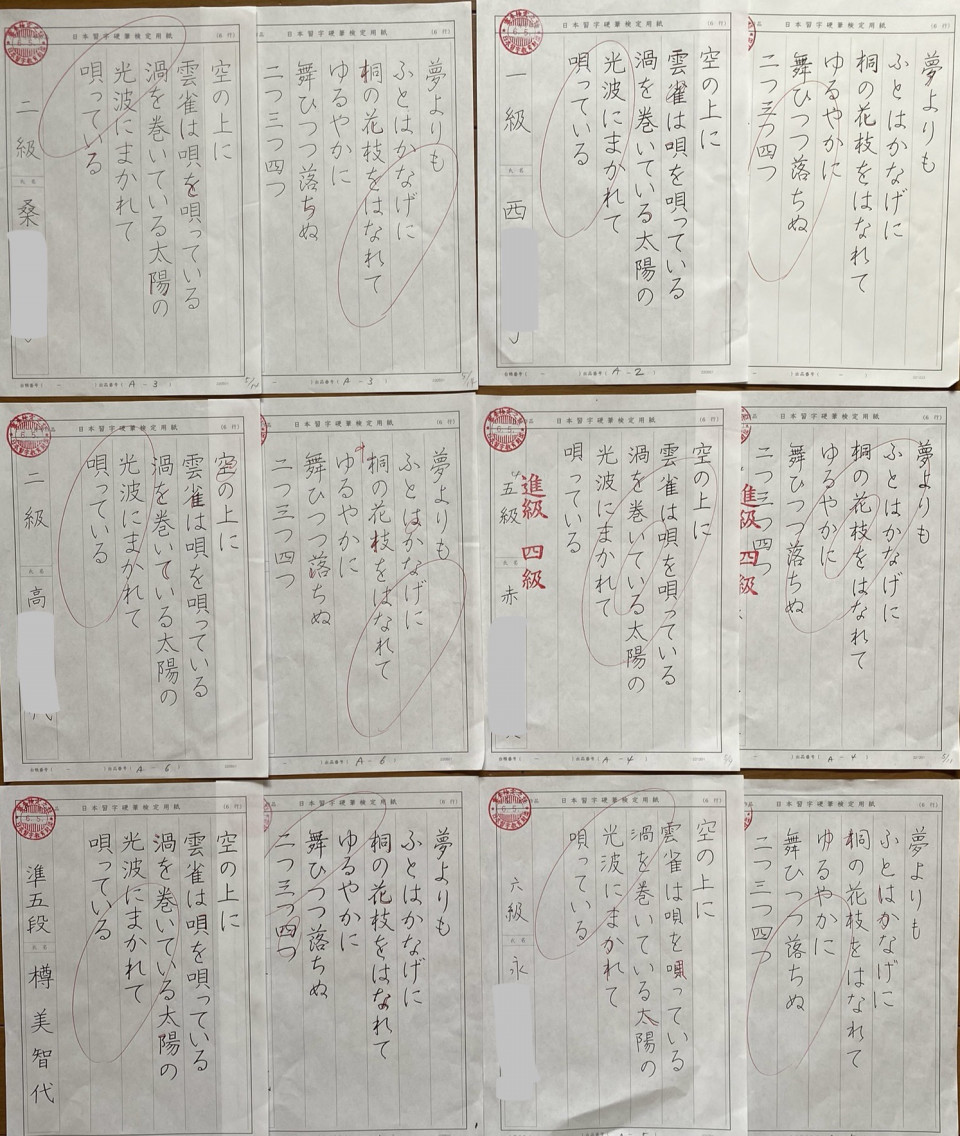 日本習字硬筆検定用紙
(6行)
空の上に
雲雀は唄を唄っている
渦を巻いている太陽の
光波にまかれて
唄っている
二級
氏名
桑
出品番号( A-3 )
日本習字硬筆検定用紙
(6行)
夢よりも
ふとはかなげに
桐の花枝をはなれて
ゆるやかに
舞ひつつ落ちぬ
二つ三つ四つ
出品番号( A-3 )
日本習字硬筆検定用紙
(6行)
空の上に
雲雀は唄を唄っている
渦を巻いている太陽の
光波にまかれて
唄っている
一級
氏名
西
出品番号( A-2 )
日本習字硬筆検定用紙
(6行)
夢よりも
ふとはかなげに
桐の花枝をはなれて
ゆるやかに
舞ひつつ落ちぬ
二つ三つ四つ
日本習字硬筆検定用紙
(6行)
空の上に
雲雀は唄を唄っている
渦を巻いている太陽の
光波にまかれて
唄っている
二級
氏名
高
出品番号( A-6 )
日本習字硬筆検定用紙
(6行)
夢よりも
ふとはかなげに
桐の花枝をはなれて
ゆるやかに
舞ひつつ落ちぬ
二つ三つ四つ
出品番号( A-6 )
日本習字硬筆検定用紙
(6行)
空の上に
雲雀は唄を唄っている
渦を巻いている太陽の
光波にまかれて
唄っている
進級 四級
五級
氏名
赤
出品番号( A-4 )
日本習字硬筆検定用紙
(6行)
夢よりも
ふとはかなげに
桐の花枝をはなれて
ゆるやかに
舞ひつつ落ちぬ
二つ三つ四つ
進級 四級
出品番号( A-4 )
日本習字硬筆検定用紙
(6行)
空の上に
雲雀は唄を唄っている
渦を巻いている太陽の
光波にまかれて
唄っている
準五段
氏名
樽美智代
日本習字硬筆検定用紙
(6行)
夢よりも
ふとはかなげに
桐の花枝をはなれて
ゆるやかに
舞ひつつ落ちぬ
二つ三つ四つ
日本習字硬筆検定用紙
(6行)
空の上に
雲雀は唄を唄っている
渦を巻いている太陽の
光波にまかれて
唄っている
六級
氏名
永
日本習字硬筆検定用紙
(6行)
夢よりも
ふとはかなげに
桐の花枝をはなれて
ゆるやかに
舞ひつつ落ちぬ
二つ三つ四つ